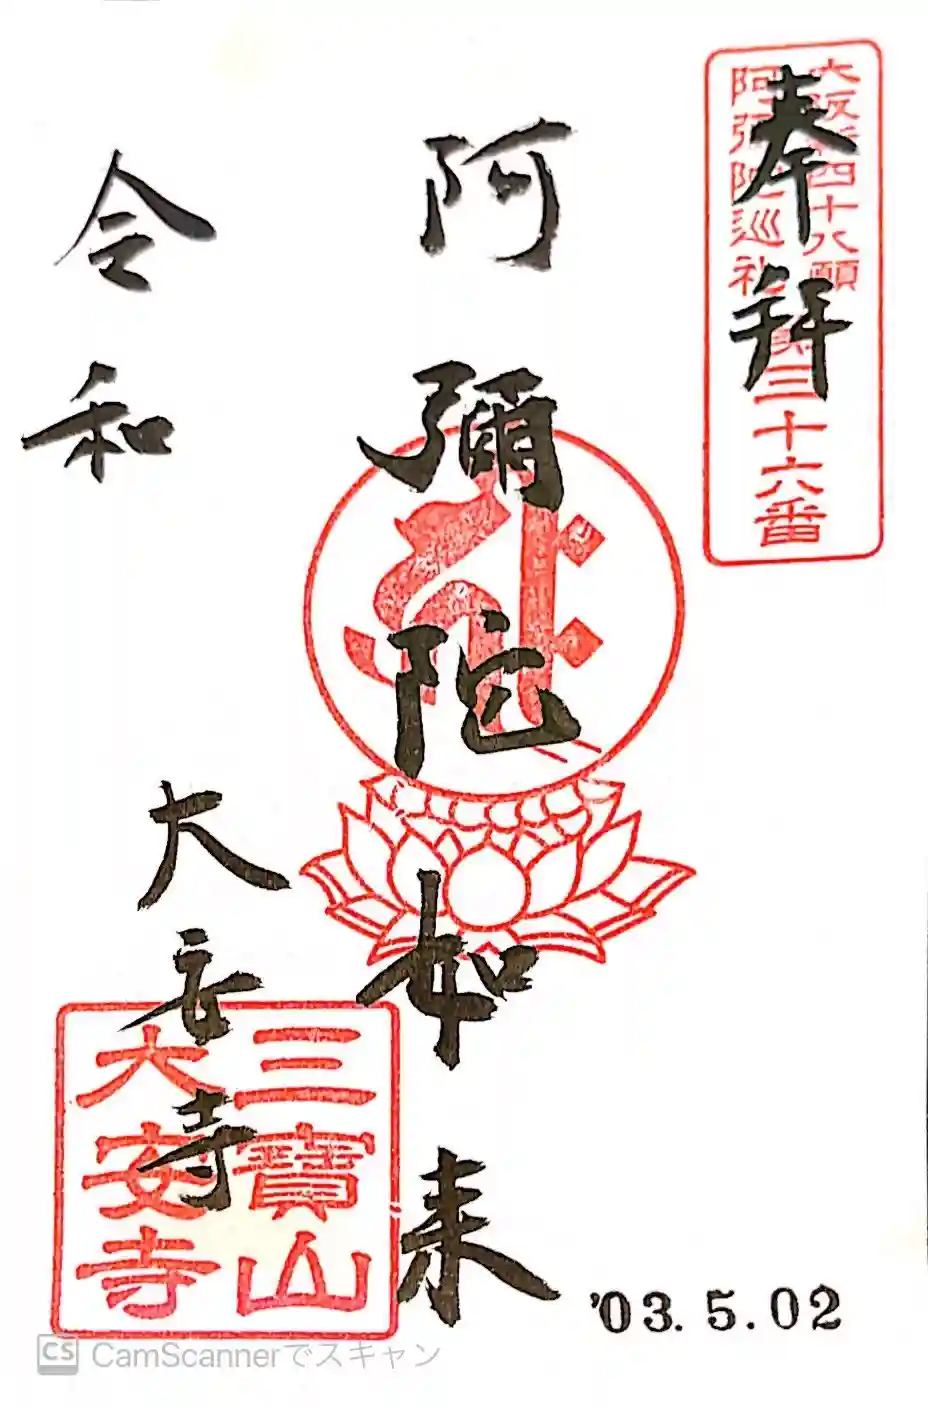 奉拝
大阪新四十八願
阿弥陀巡礼 第三十六番
阿彌陀如来
令和
大安寺
三寶山
大安寺
'03.5.02
CS CamScannerでスキャン